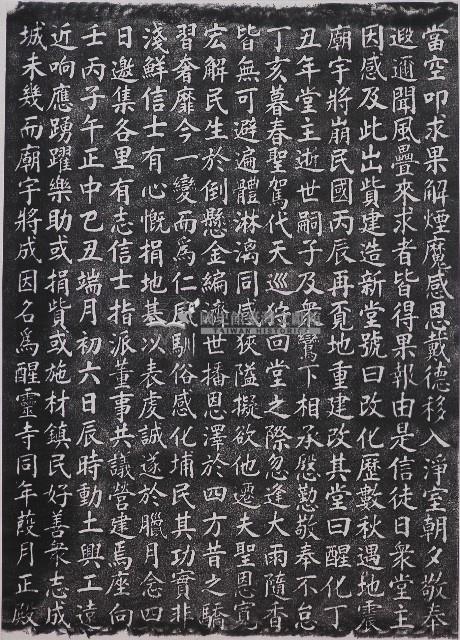 當空叩求果解煙魔感恩戴德移入淨室朝夕敬奉
遐邇聞風疊來求者皆得果報由是信徒日衆堂主
因感及此出貲建造新堂號曰改化歷數秋遇地震
廟宇將崩民國丙辰再覓地重建改其堂曰醒化丁
丑年堂主逝世嗣子及衆鸞下相承慇懃敬奉不怠
丁亥暮春聖駕代天巡狩回堂之際忽逢大雨隨香
皆無可避遍體淋漓同感狹隘擬欲他遷夫聖恩寬
宏解民生於倒懸金編濟世播恩澤於四方昔之驕
習奢靡今一變而爲仁風馴俗感化埔民其功實非
淺鮮信士有心慨捐地基以表虔誠遂於臘月念四
日邀集各里有志信士指派董事共議營建焉座向
壬丙子午正中己丑端月初六日辰時動土興工遠
近响應踴躍樂助或捐貲或施材鎮民好善衆志成
城未幾而廟宇將成因名爲醒靈寺同年葭月正殿
國史館臺灣文獻館
TAIWAN HISTORICA